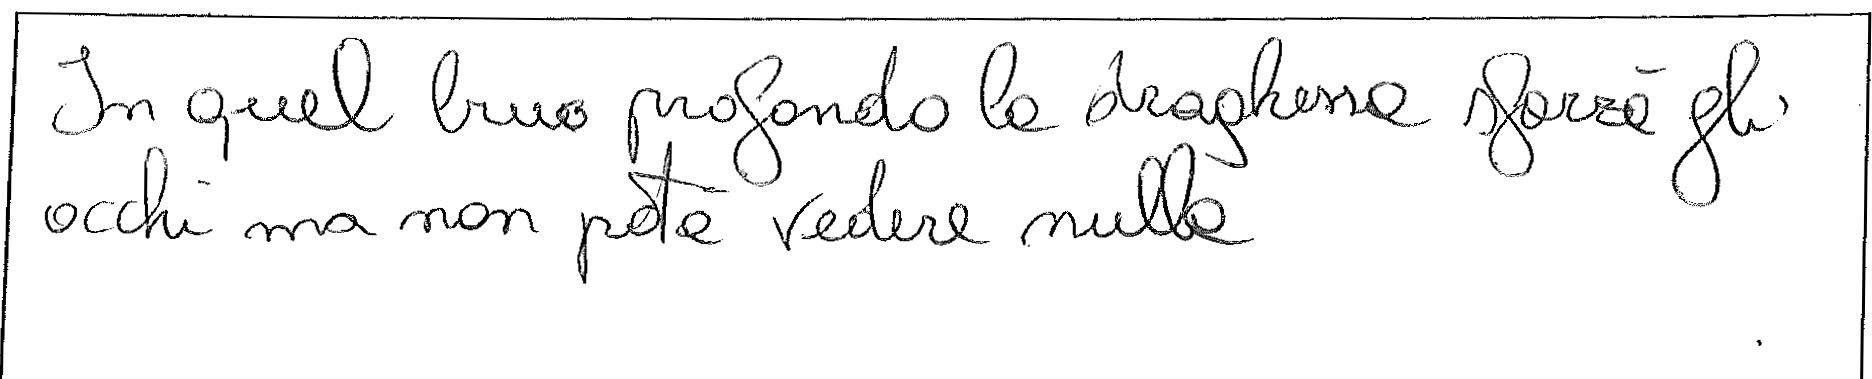 In quel bruo profondo la draghessa sforzà gli
occhi ma non potè vedere nulla